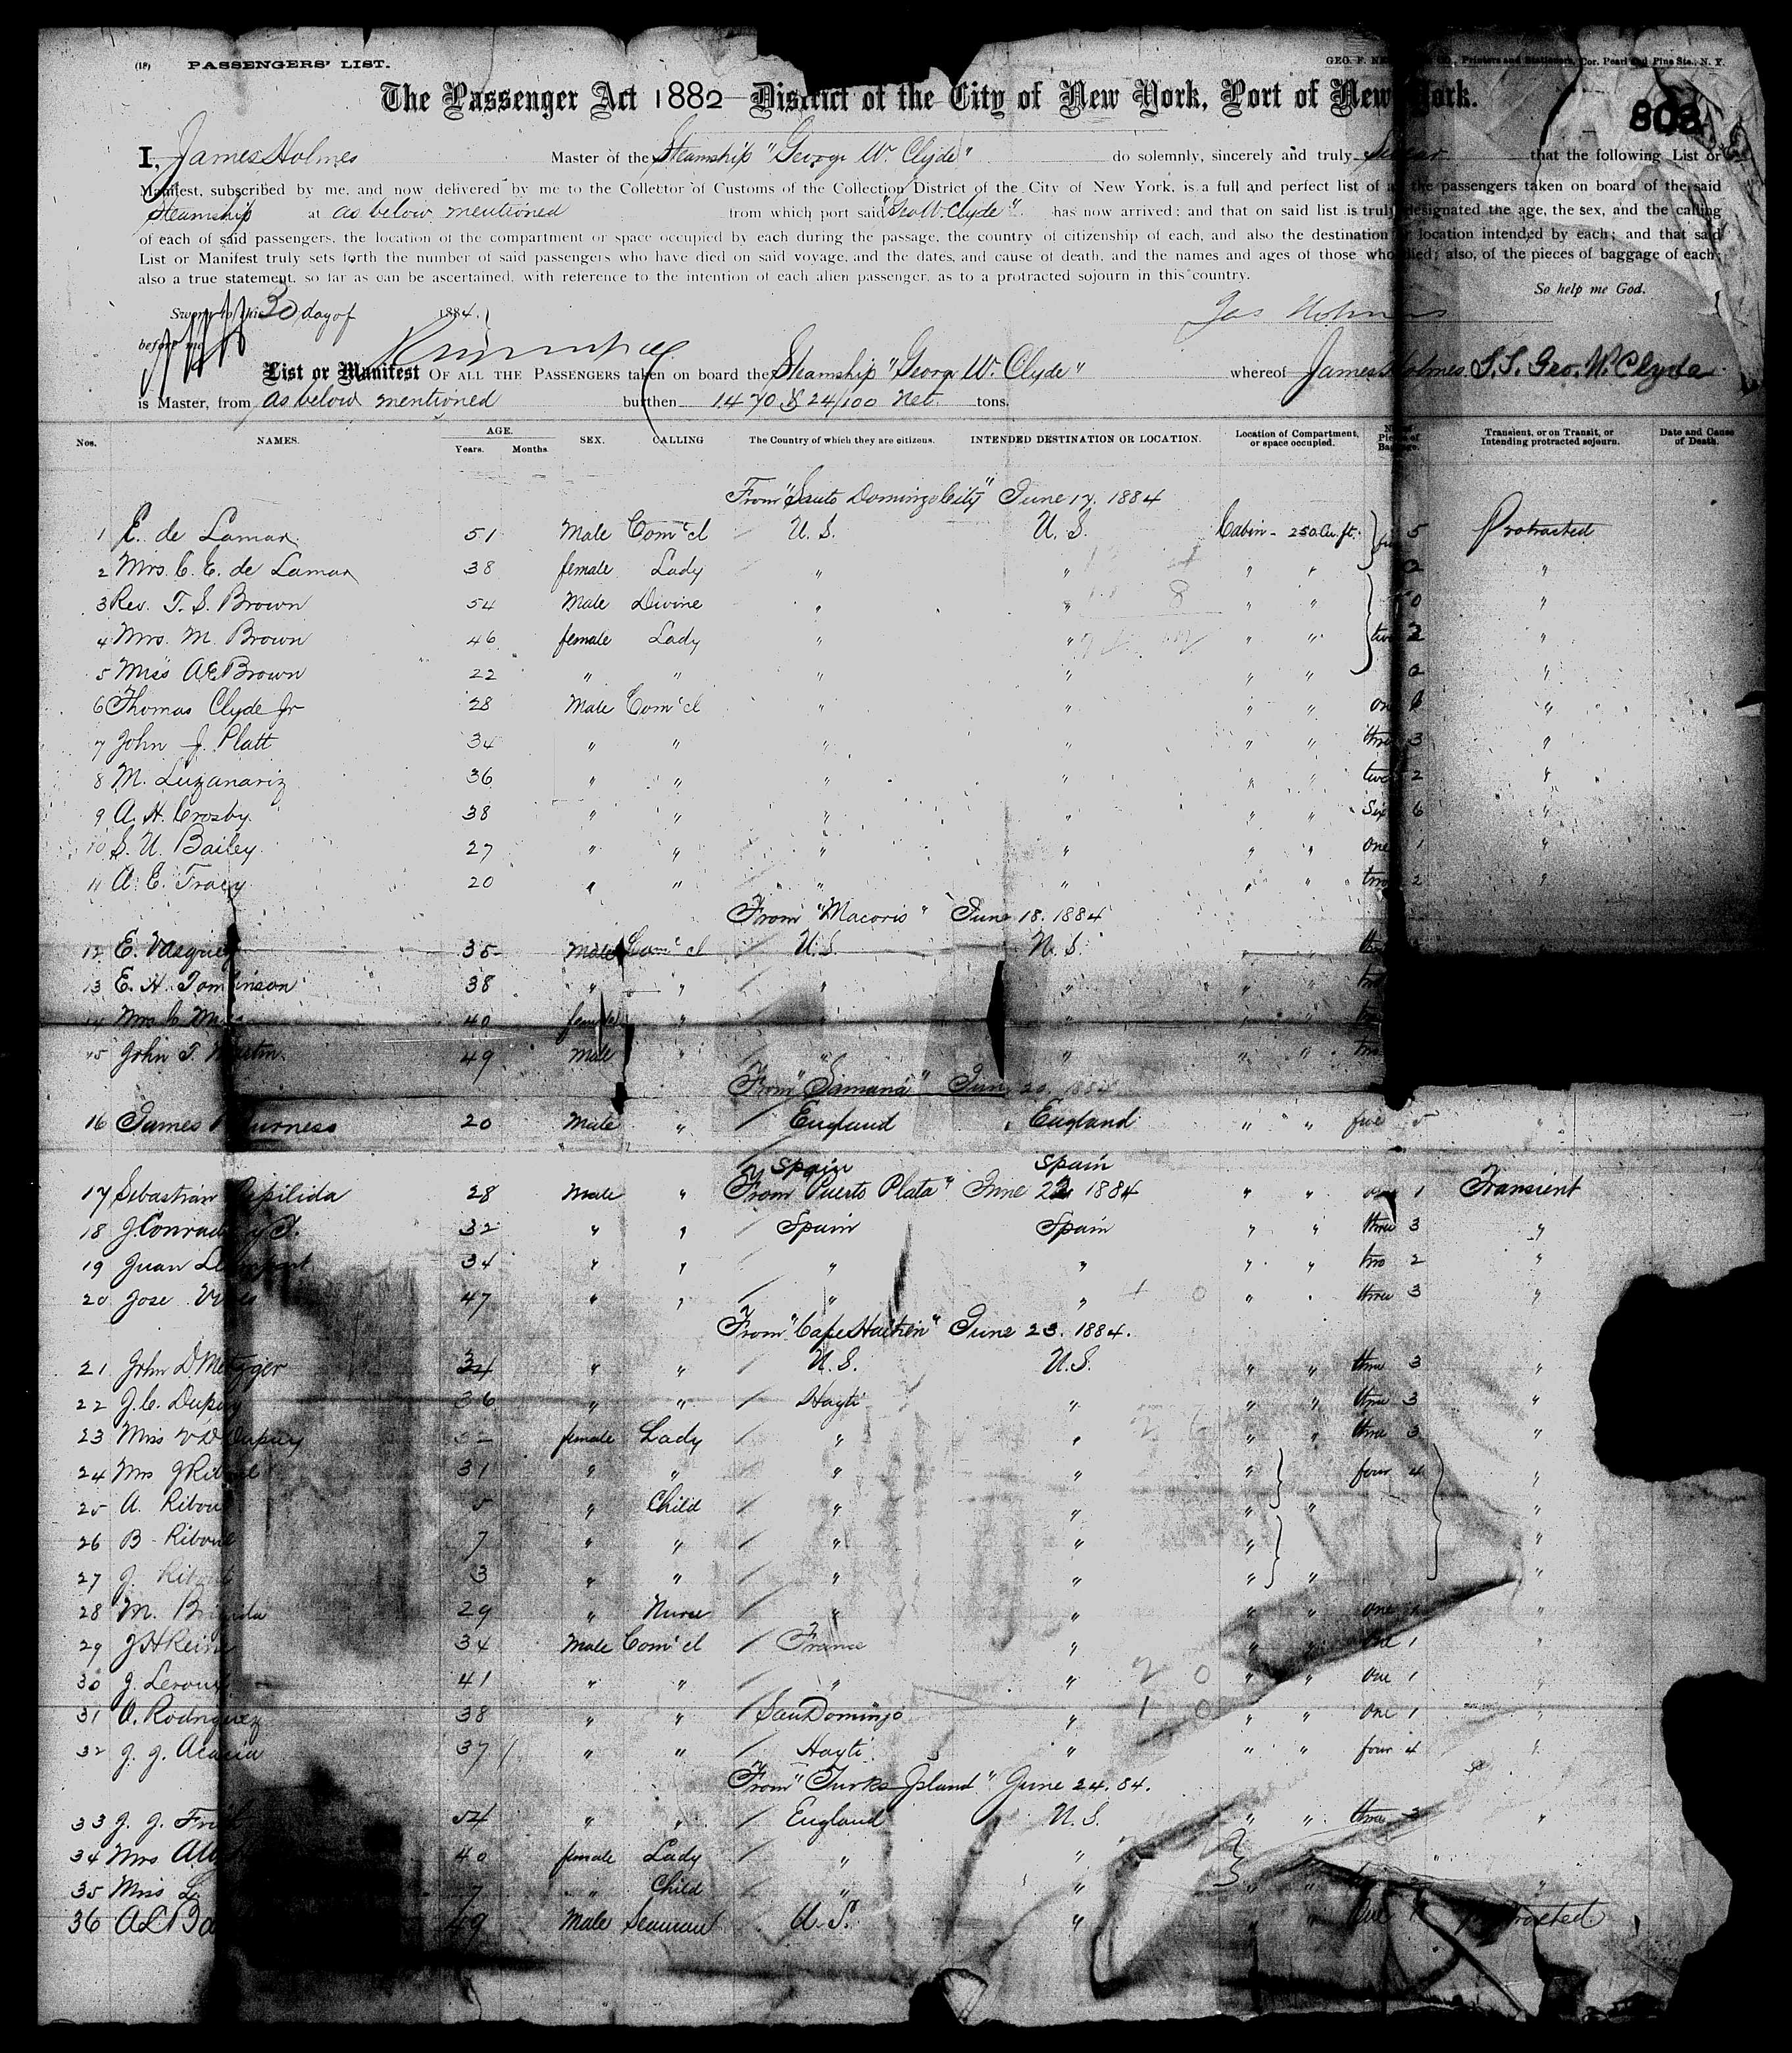 (18) PASSENGERS' LIST.
GEO. F. Printers and Stationers, Cor. Pearl and Pine Sts., N. Y.
The Passenger Act 1882 District of the City of New York, Port of New York.
803
I, James Holmes Master of the Steamship "George W. Clyde" do solemnly, sincerely and truly Swear that the following List or
Manifest, subscribed by me, and now delivered by me to the Collector of Customs of the Collection District of the City of New York, is a full and perfect list of all the passengers taken on board of the said
Steamship at as below mentioned from which port said "Geo W. Clyde" has now arrived; and that on said list is truly designated the age, the sex, and the calling
of each of said passengers, the location of the compartment or space occupied by each during the passage, the country of citizenship of each, and also the destination or location intended by each; and that said
List or Manifest truly sets forth the number of said passengers who have died on said voyage, and the dates, and cause of death, and the names and ages of those who died; also, of the pieces of baggage of each;
also a true statement, so far as can be ascertained, with reference to the intention of each alien passenger, as to a protracted sojourn in this country.
So help me God.
Sworn to this 30 day of 1884.
Jas Holmes
before me
List or Manifest OF ALL THE PASSENGERS taken on board the Steamship "George W. Clyde" whereof James Holmes S.S. Geo. W. Clyde
is Master, from as below mentioned burthen 1470 & 24/100 Net tons.
Nos. NAMES. AGE. Years. Months. SEX. CALLING The Country of which they are citizens. INTENDED DESTINATION OR LOCATION. Location of Compartment, or space occupied. No. of Pieces of Baggage. Transient, or on Transit, or Intending protracted sojourn. Date and Cause of Death.
From "Santo Domingo City" June 17, 1884
1 E. de Lamar 51 Male Com'cl U.S. U.S. Cabin - 250 Cu. ft. 5 Protracted
2 Mrs. C. E. de Lamar 38 female Lady " " " " 2 "
3 Rev. T. S. Brown 54 Male Divine " " " " 0 "
4 Mrs. M. Brown 46 female Lady " " " " two 2 "
5 Miss A E Brown 22 " " " " " " 2 "
6 Thomas Clyde Jr 28 Male Com'cl " " " " one "
7 John J. Platt 34 " " " " " " three 3 "
8 M. Luzanariz 36 " " " " " " two 2 "
9 A. H. Crosby 38 " " " " " " Six 6 "
10 S. U. Bailey 27 " " " " " " one 1 "
11 A. E. Tracy 20 " " " " " " two 2 "
From "Macoris" June 18. 1884
12 E. Vasquez 35 Male Com'cl U.S. U.S. " "
13 E. H. Tomlinson 38 " " " " " " two
14 Mrs. 40 female " " " " "
15 John T. Martin 49 Male " " " " " two
From "Samana" June 20. 1884
16 James Furness 20 Male " England England " " five 5 "
Spain Spain
From Puerto Plata" June 22 1884
17 Sebastian 28 Male " " " one 1 Transient
18 J. Conrad y 32 " " Spain Spain " " three 3 "
19 Juan 34 " " " " " " two 2 "
20 Jose 47 " " " " " " three 3 "
From "Cape Haitien" June 23. 1884.
21 John D Metzger 34 " " U.S. U.S. " " three 3 "
22 J. C. Dupuy 36 " " Hayti " " " three 3 "
23 Miss Dupuy female Lady " " " " three 3 "
24 Mrs J Riboul 31 " " " " " four 4 "
25 A. Riboul 5 " Child " " " " "
26 B. Riboul 7 " " " " " "
27 J. Riboul 3 " " " " " " "
28 M. 29 " Nurse " " " " one "
29 J H 34 Male Com'cl France " " " one 1 "
30 J. Leroux 41 " " " " " " one 1 "
31 A. Rodriguez 38 " " San Domingo " " " one 1 "
32 J. J. Acacia 37 " " Hayti " " " four 4 "
From "Turks Island" June 24. 84.
33 J. J. 54 " " England U.S. " " three 3 "
34 Mrs 40 female Lady " " "
35 Miss 7 " Child " " " "
36 A L 49 Male Seaman U.S. " " " One 1 Protracted